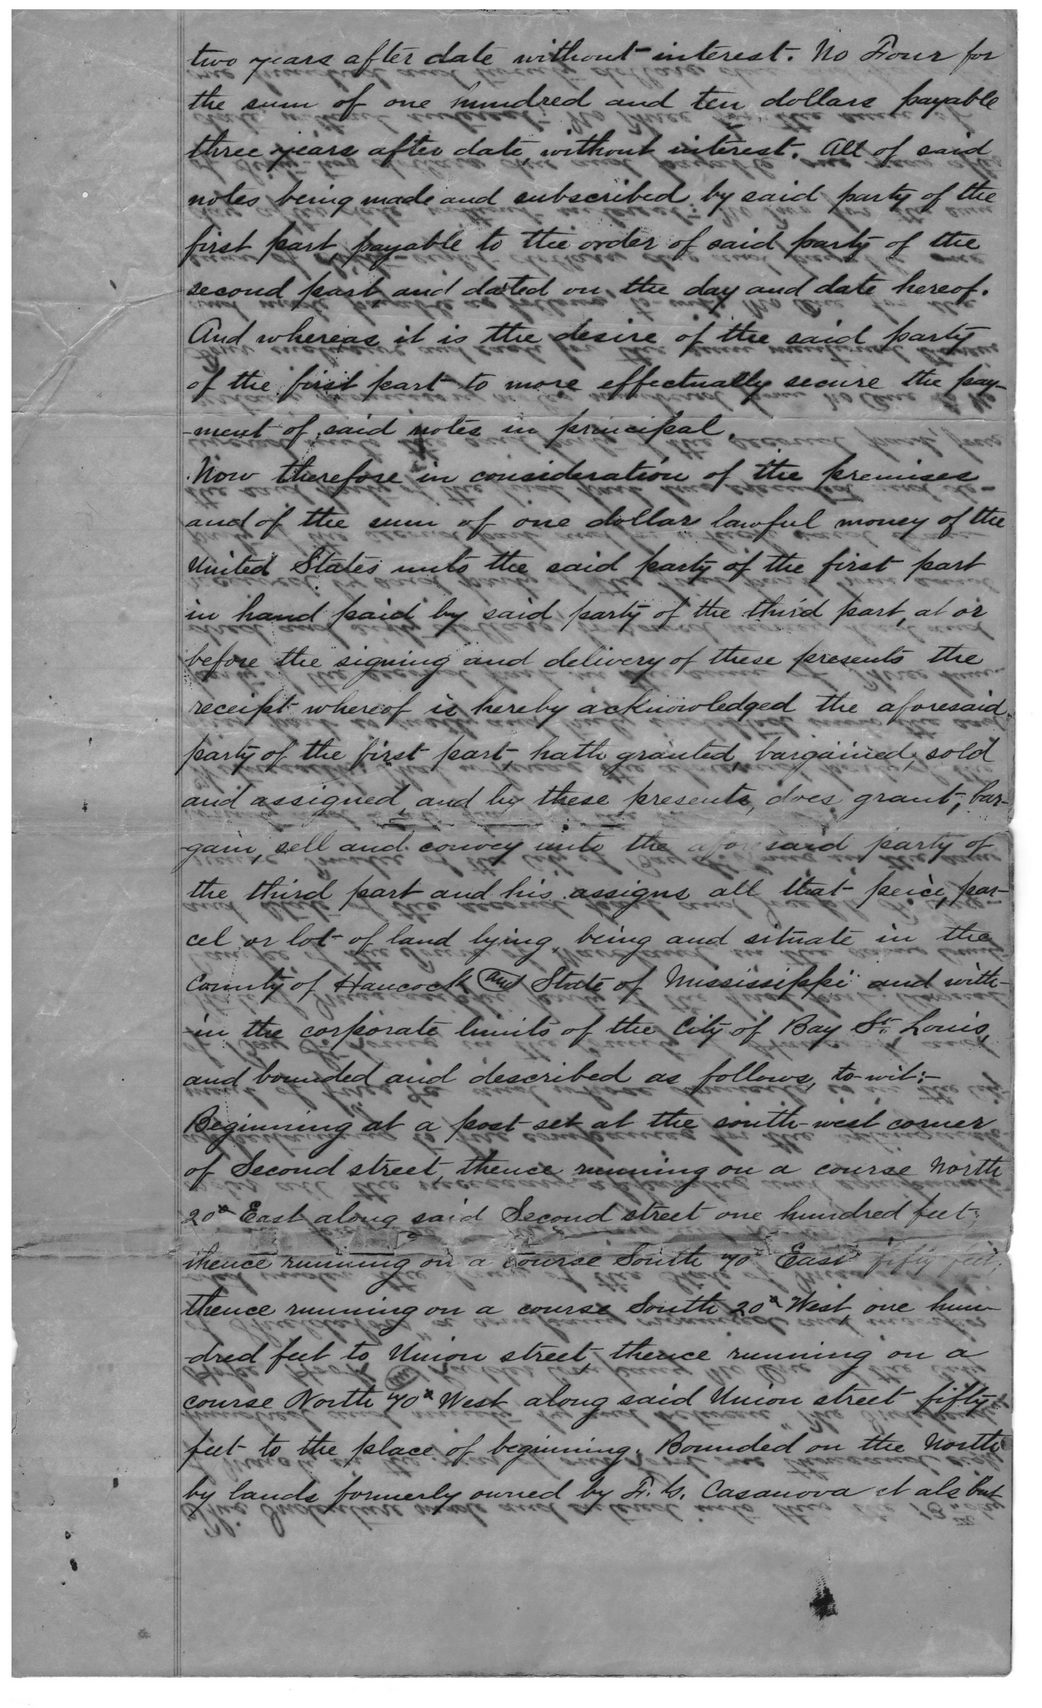 two years after date without interest. No Four for
the sum of one hundred and ten dollars payable
three years after date, without interest. All of said
notes being made and subscribed by said party of the
first part, payable to the order of said party of the
second part and dated on the day and date hereof.
And whereas it is the desire of the said party
of the first part to more effectually secure the pay-
-ment of said notes in principal.
Now therefore in consideration of the premises
and of the sum of one dollar lawful money of the
United States unto the said party of the first part
in hand paid by said party of the third part, at or
before the signing and delivery of these presents the
receipt whereof is hereby acknowledged the aforesaid
party of the first part, hath granted, bargained, sold
and assigned, and by these presents, does grant, bar-
gain, sell and convey unto the aforesaid party of
the third part and his assigns all that peice, par-
cel or lot of land lying being and situate in the
County of Hancock and State of Mississippi and with-
-in the corporate limits of the City of Bay St. Louis,
and bounded and described as follows, to-wit:-
Beginning at a post set at the south-west corner
of Second street, thence running on a course North
20° East along said Second street one hundred feet;
thence running on a course South 70° East fifty feet;
thence running on a course South 20° West, one hun-
-dred feet to Union street thence running on a
course North 70° West along said Union street fifty
feet to the place of beginning. Bounded on the North
by lands formerly owned by Casanova et als but